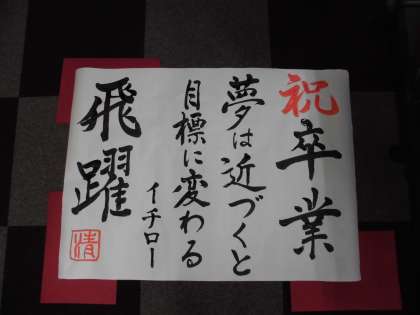 祝卒業
夢は近づくと
目標に変わる
イチロー
飛躍
清